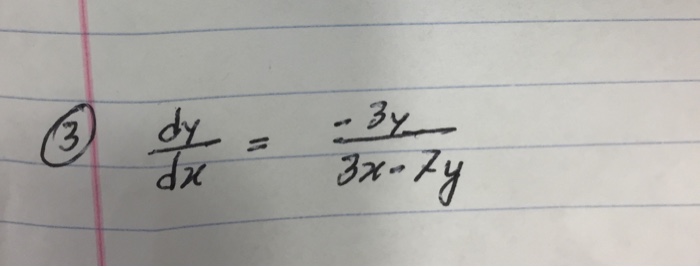 ③ dy/dx = -3y/(3x-7y)